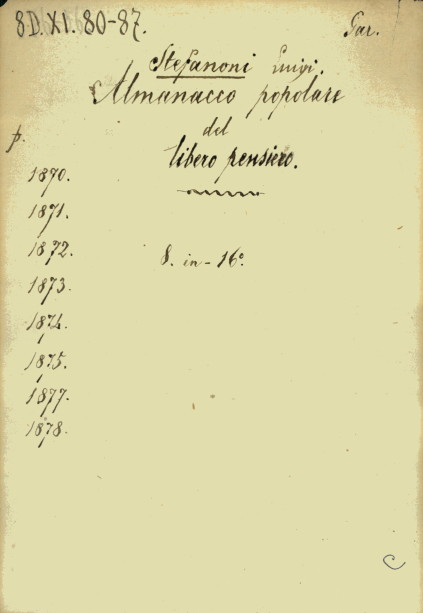 8D. XI. 80-87.
Gar.
Stefanoni Luigi.
Almanacco popolare
del
libero pensiero.
p.
1870.
1871.
1872.
8. in-16°.
1873.
1874.
1875.
1877.
1878.
C